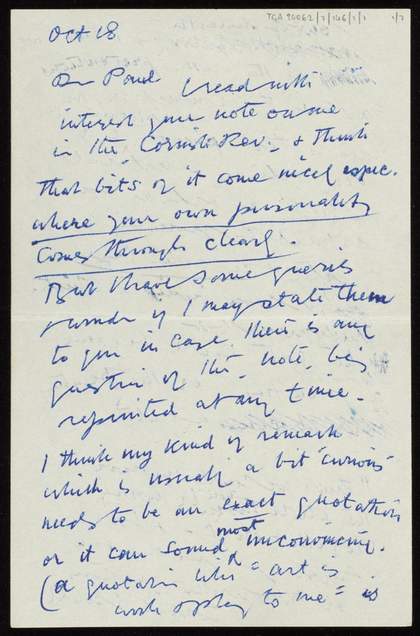 TGA 20062/1/146/1/1 1/2
Oct 18
Dear Paul I read with
interest your note on me
in the Cornish Rev., & think
that bits of it come nicely espec.
where your own personality
comes through clearly.
But I have some queries
wonder if I may state them
to you in case there is any
question of the note being
reprinted at any time.
I think my kind of remark
which is usually a bit 'curious'
needs to be an exact quotation
or it can sound most unconvincing.
(a quotation like "art is
work & play to me" is